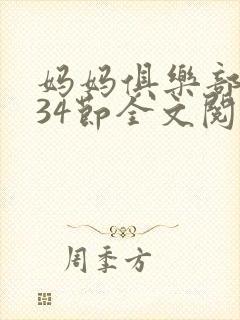 妈妈俱樂部
34節全文閱
周季方